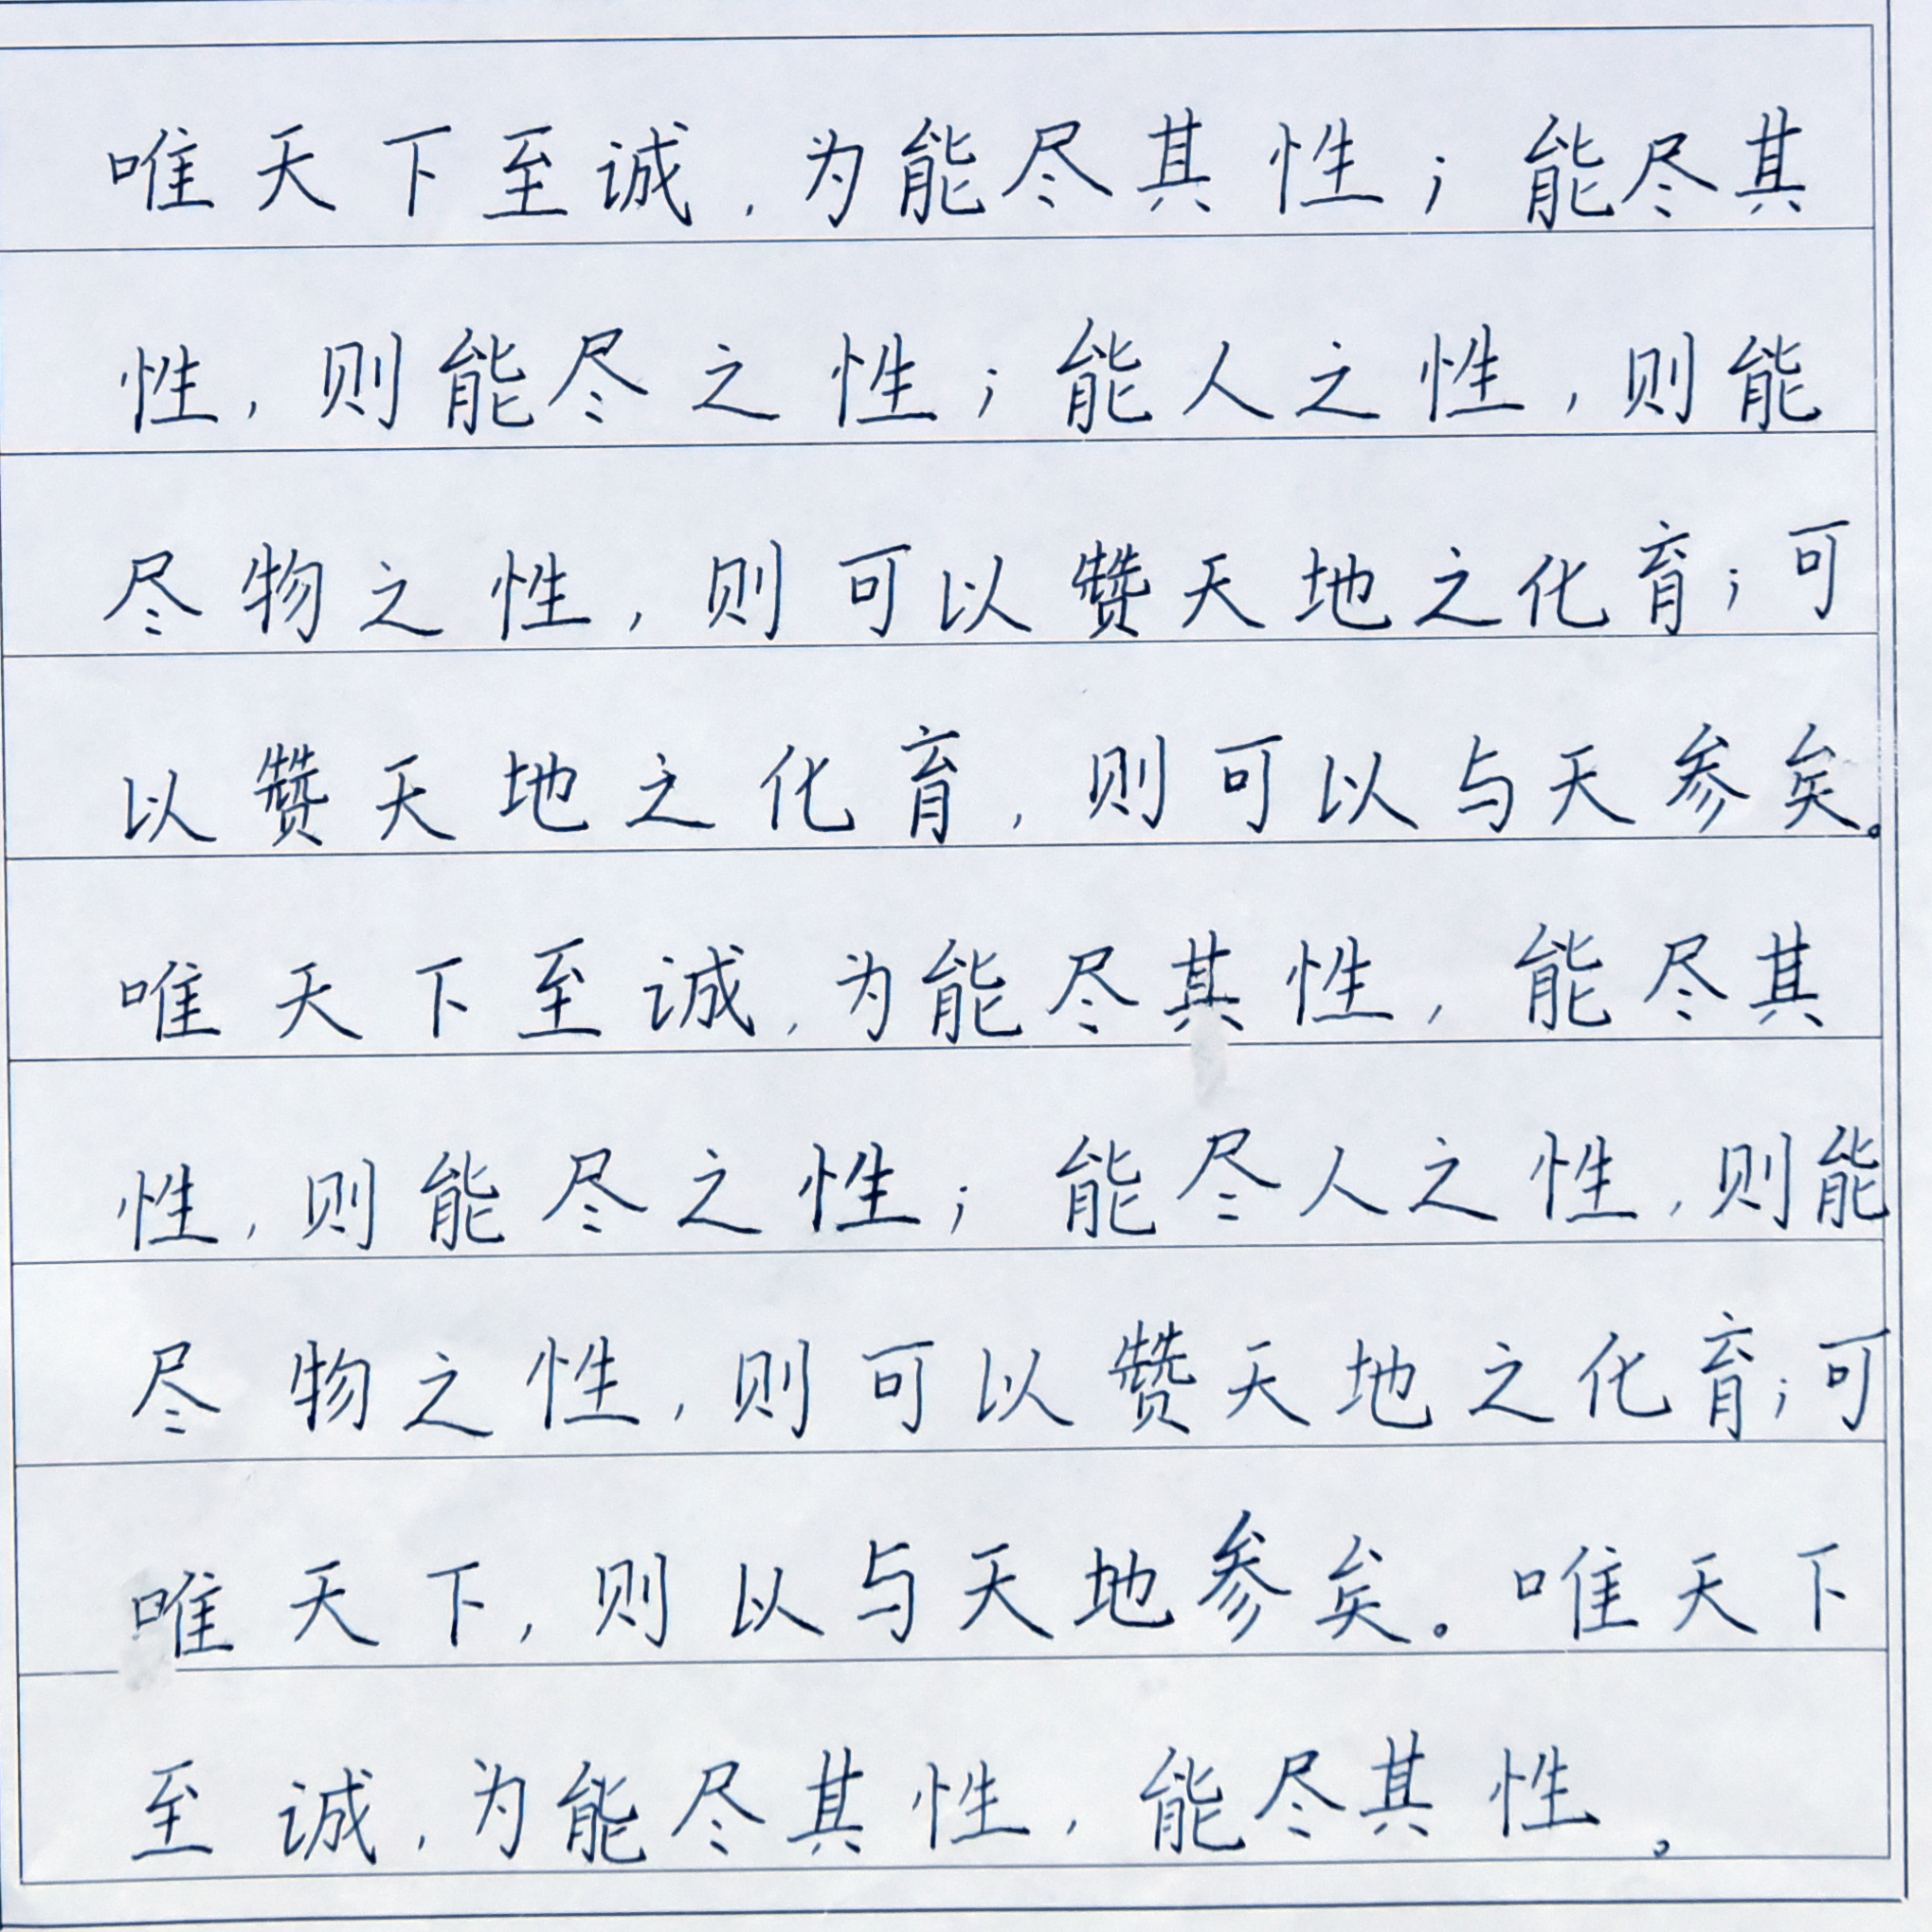 唯天下至诚,为能尽其性;能尽其
性,则能尽之性;能人之性,则能
尽物之性,则可以赞天地之化育;可
以赞天地之化育,则可以与天参矣。
唯天下至诚,为能尽其性,能尽其
性,则能尽之性;能尽人之性,则能
尽物之性,则可以赞天地之化育;可
唯天下,则以与天地参矣。唯天下
至诚,为能尽其性,能尽其性。